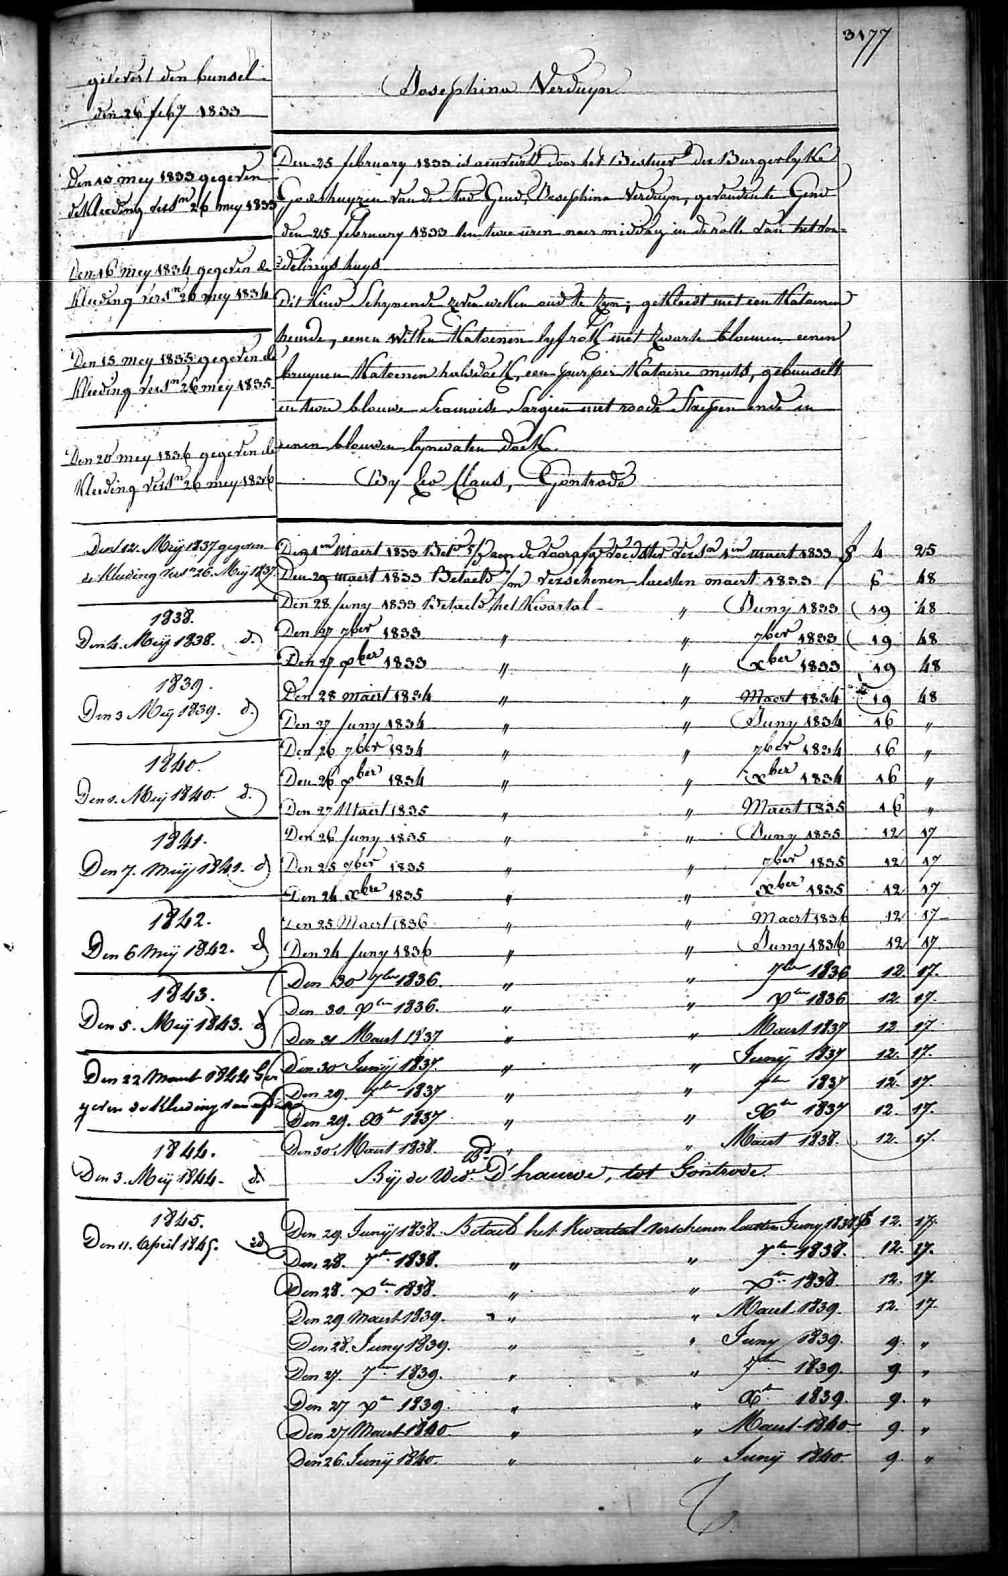 3177
gelevert den bunsel
den 26 feby 1833
Josephina Verduyn
Den 10 mey 1833 gegeven
de kleeding vers.n 26 mey 1833
Den 16 mey 1834 gegeven de
kleeding vers.n 26 mey 1834
Den 15 mey 1835 gegeven de
kleeding vers.n 26 mey 1835
Den 20 mey 1836 gegeven de
kleeding vers.n 26 mey 1836
Den 12. Meij 1837 gegeven
de kleeding vers.n 26. Meij 1837.
1838.
Den 4. Meij 1838. d.
1839.
Den 3. Meij 1839. d.
1840.
Den 1. Meij 1840. d.
1841.
Den 7. Meij 1841. d
1842.
Den 6 Meij 1842. d
1843.
Den 5. Meij 1843. d
Den 22 Maert 1844 Ge
geven de kleeding van
1844.
Den 3. Meij 1844. d.
1845.
Den 11. April 1845. id
Den 25 february 1833 is door het Bestuer der Burgerlyke
Godshuyzen van de stad Gend, Josephina Verduyn, gevonden te Gend
den 25 february 1833 ten twee uren naer middag in de rolle van het von-
delings huys
Dit kind schynende zeven weken oud te zyn; gekleedt met een katoenen
hemde, eenen witten katoenen lyfrok met zwarte bloemen eenen
bruynen katoenen halsdoek, een purper katoene muts, gebunselt
in twee blauwe siamoise sargien met roode streepen ende in
eenen blauwen lynwaten doek.
By Leo Claus, Gontrode
Den 1.n Maert 1833 Bet.lt aen de voorafg. voedster vers.n 1.n maert 1833 § 4 25
Den 29 maert 1833 Betaeld verschenen laesten maert 1833 6 48
Den 28 juny 1833 Betaeld het kwartal „ Juny 1833 19 48
Den 27 7ber 1833 „ „ 7ber 1833 19 48
Den 27 xber 1833 „ „ xber 1833 19 48
Den 28 maert 1834 „ „ Maert 1834 19 48
Den 27 juny 1834 „ „ Juny 1834 16 „
Den 26 7ber 1834 „ „ 7ber 1834 16 „
Den 26 xber 1834 „ „ xber 1834 16 „
Den 27 Maert 1835 „ „ Maert 1835 16 „
Den 26 juny 1835 „ „ Juny 1835 12 17
Den 25 7ber 1835 „ „ 7ber 1835 12 17
Den 24 xbre 1835 „ „ xber 1835 12 17
Den 25 Maert 1836 „ „ Maert 1836 12 17
Den 24 juny 1836 „ „ Juny 1836 12 17.
Den 30 7ber 1836. „ „ 7ber 1836 12. 17.
Den 30. xber 1836. „ „ xber 1836 12. 17.
Den 31 Maert 1837 „ „ Maert 1837 12. 17.
Den 30 Junij 1837. „ „ Junij 1837 12. 17.
Den 29. 7ber 1837 „ „ 7ber 1837 12. 17.
Den 29. Xber 1837 „ „ Xber 1837 12. 17.
Den 30 Maert 1838. „ „ Maert 1838. 12. 17.
Bij de Wed.e Bd D'hauwe, tot Gontrode.
Den 29. Junij 1838. Betaelt het kwartael verschenen laesten Juny 1838 § 12. 17.
Den 28. 7ber 1838. „ „ 7ber 1838. 12. 17.
Den 28. xber 1838. „ „ xber 1838 12. 17.
Den 29 Maert 1839. „ „ Maert 1839. 12. 17.
Den 28. Juny 1839. „ „ Juny 1839. 9. „
Den 27. 7ber 1839. „ „ 7ber 1839. 9. „
Den 27 xber 1839. „ „ Xber 1839. 9. „
Den 27 Maert 1840 „ „ Maert 1840 9. „
Den 26. Junij 1840. „ „ Junij 1840. 9. „